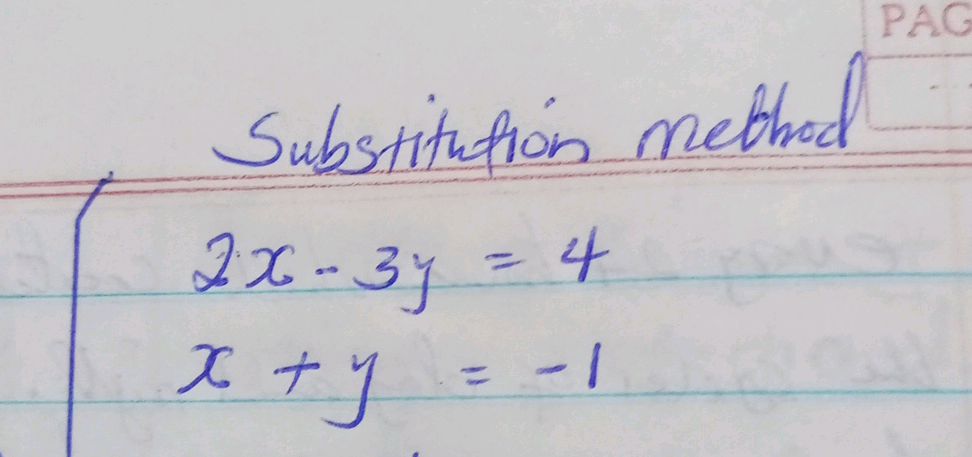 PAG
Substitution method
2x - 3y = 4
x + y = -1